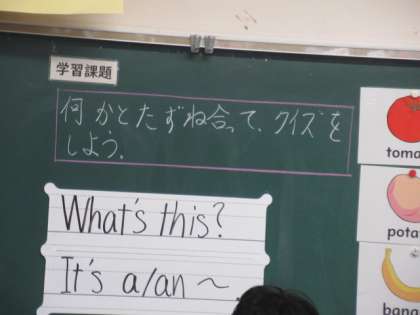 学習課題
何かとたずね合って、クイズを
しよう。
What's this?
It's a/an ～
toma
pota
bana